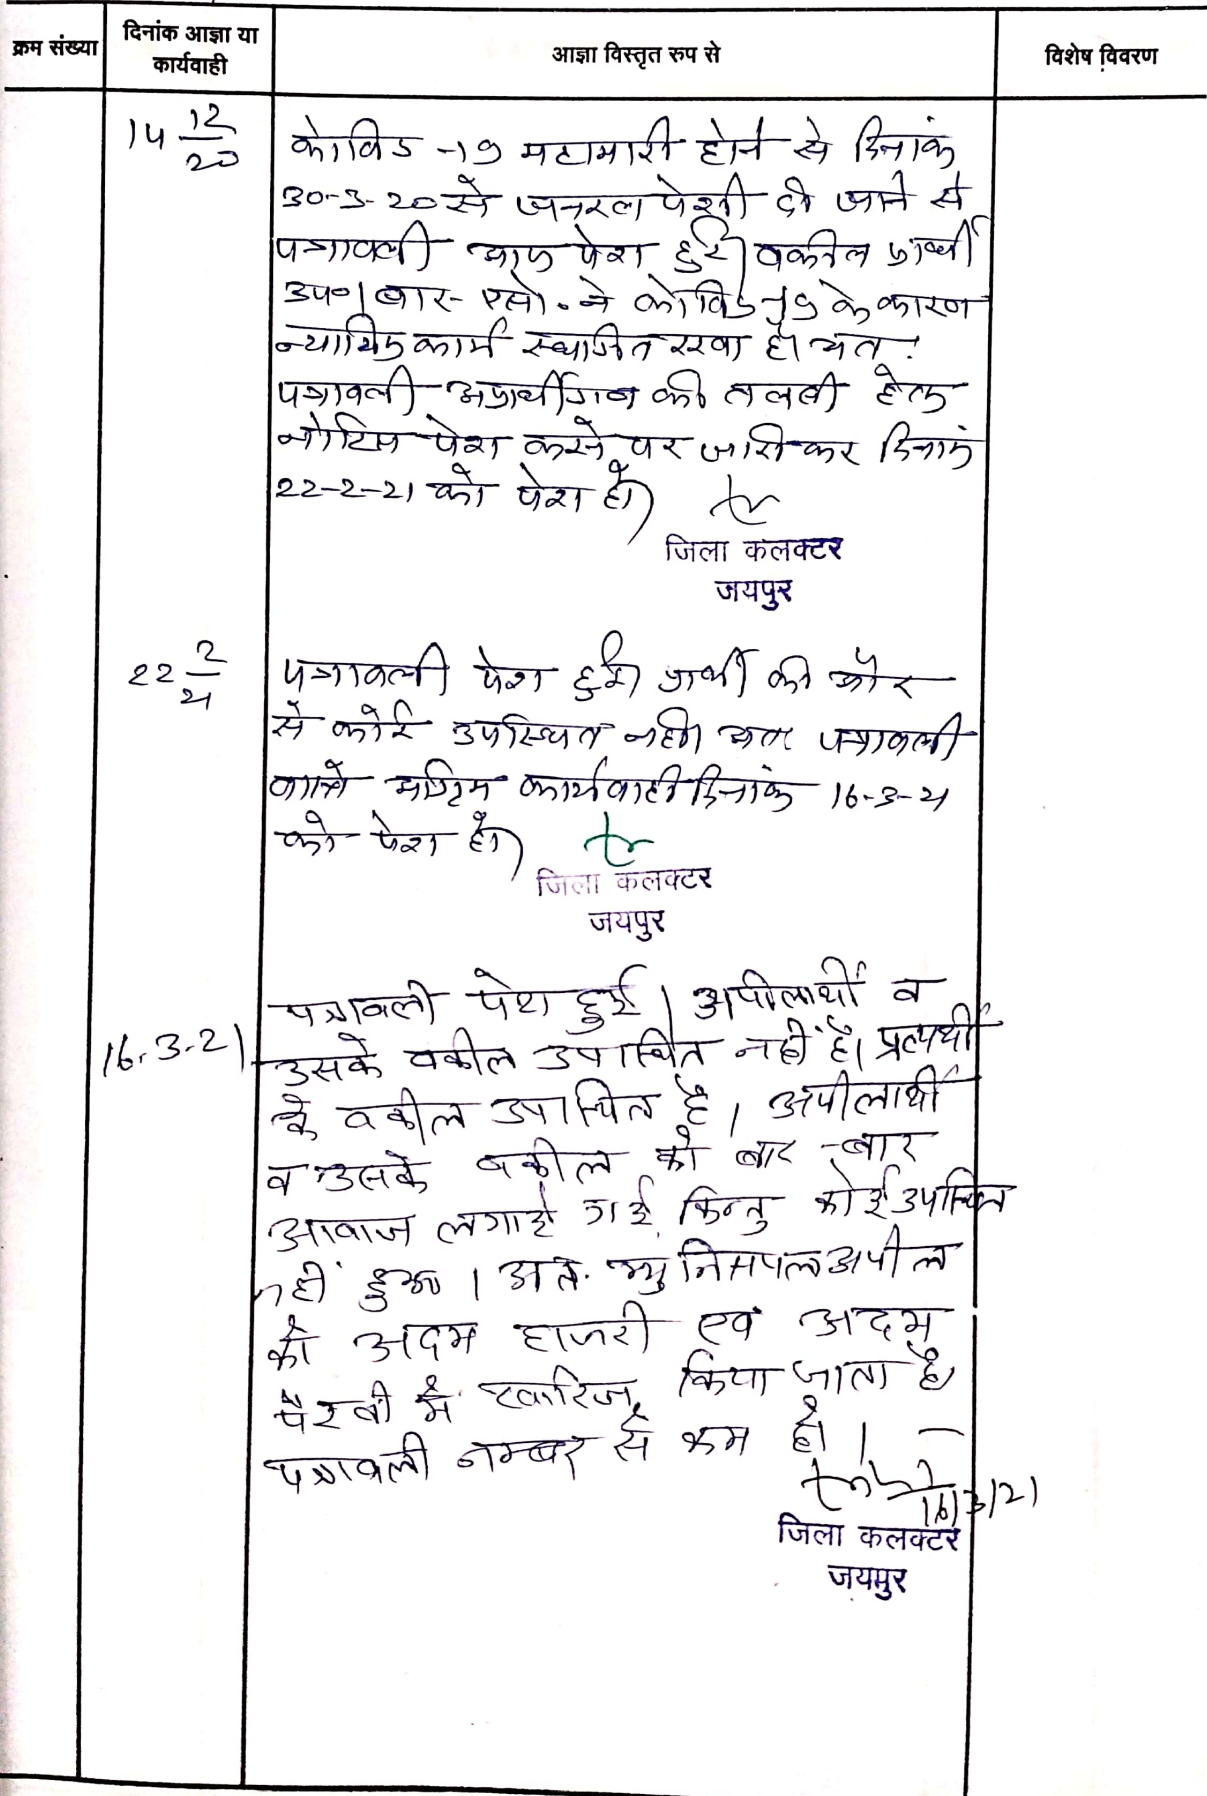 क्रम संख्या
दिनांक आज्ञा या
कार्यवाही
आज्ञा विस्तृत रुप से
विशेष विवरण
14 12/20
कोविड -19 महामारी होने से दिनांक
30-3-20 से जनरल पेशी दी जाने से
पत्रावली आज पेश हुई। वकील प्रार्थी
उप०। बार- एसो. ने कोविड-19 के कारण
न्यायिक कार्य स्थगित रखा है। अत:
पत्रावली अप्रार्थीगण की तलबी हेतु
नोटिस पेश करने पर जारी कर दिनांक
22-2-21 को पेश हो।
जिला कलक्टर
जयपुर
22 2/21
पत्रावली पेश हुई। प्रार्थी की ओर
से कोई उपस्थित नहीं। अतः पत्रावली
वास्ते अग्रिम कार्यवाही दिनांक 16-3-21
को पेश हो।
जिला कलक्टर
जयपुर
16.3.21
पत्रावली पेश हुई। अपीलार्थी व
उसके वकील उपस्थित नहीं है। प्रत्यर्थी
के वकील उपस्थित है। अपीलार्थी
व उसके वकील को बार -बार
आवाज लगाई गई किन्तु कोई उपस्थित
नहीं हुआ। अत. म्युनिसपल अपील
को अदम हाजरी एवं अदम
पैरवी में खारिज किया जाता है।
पत्रावली नम्बर से कम हो।
16/3/21
जिला कलक्टर
जयपुर